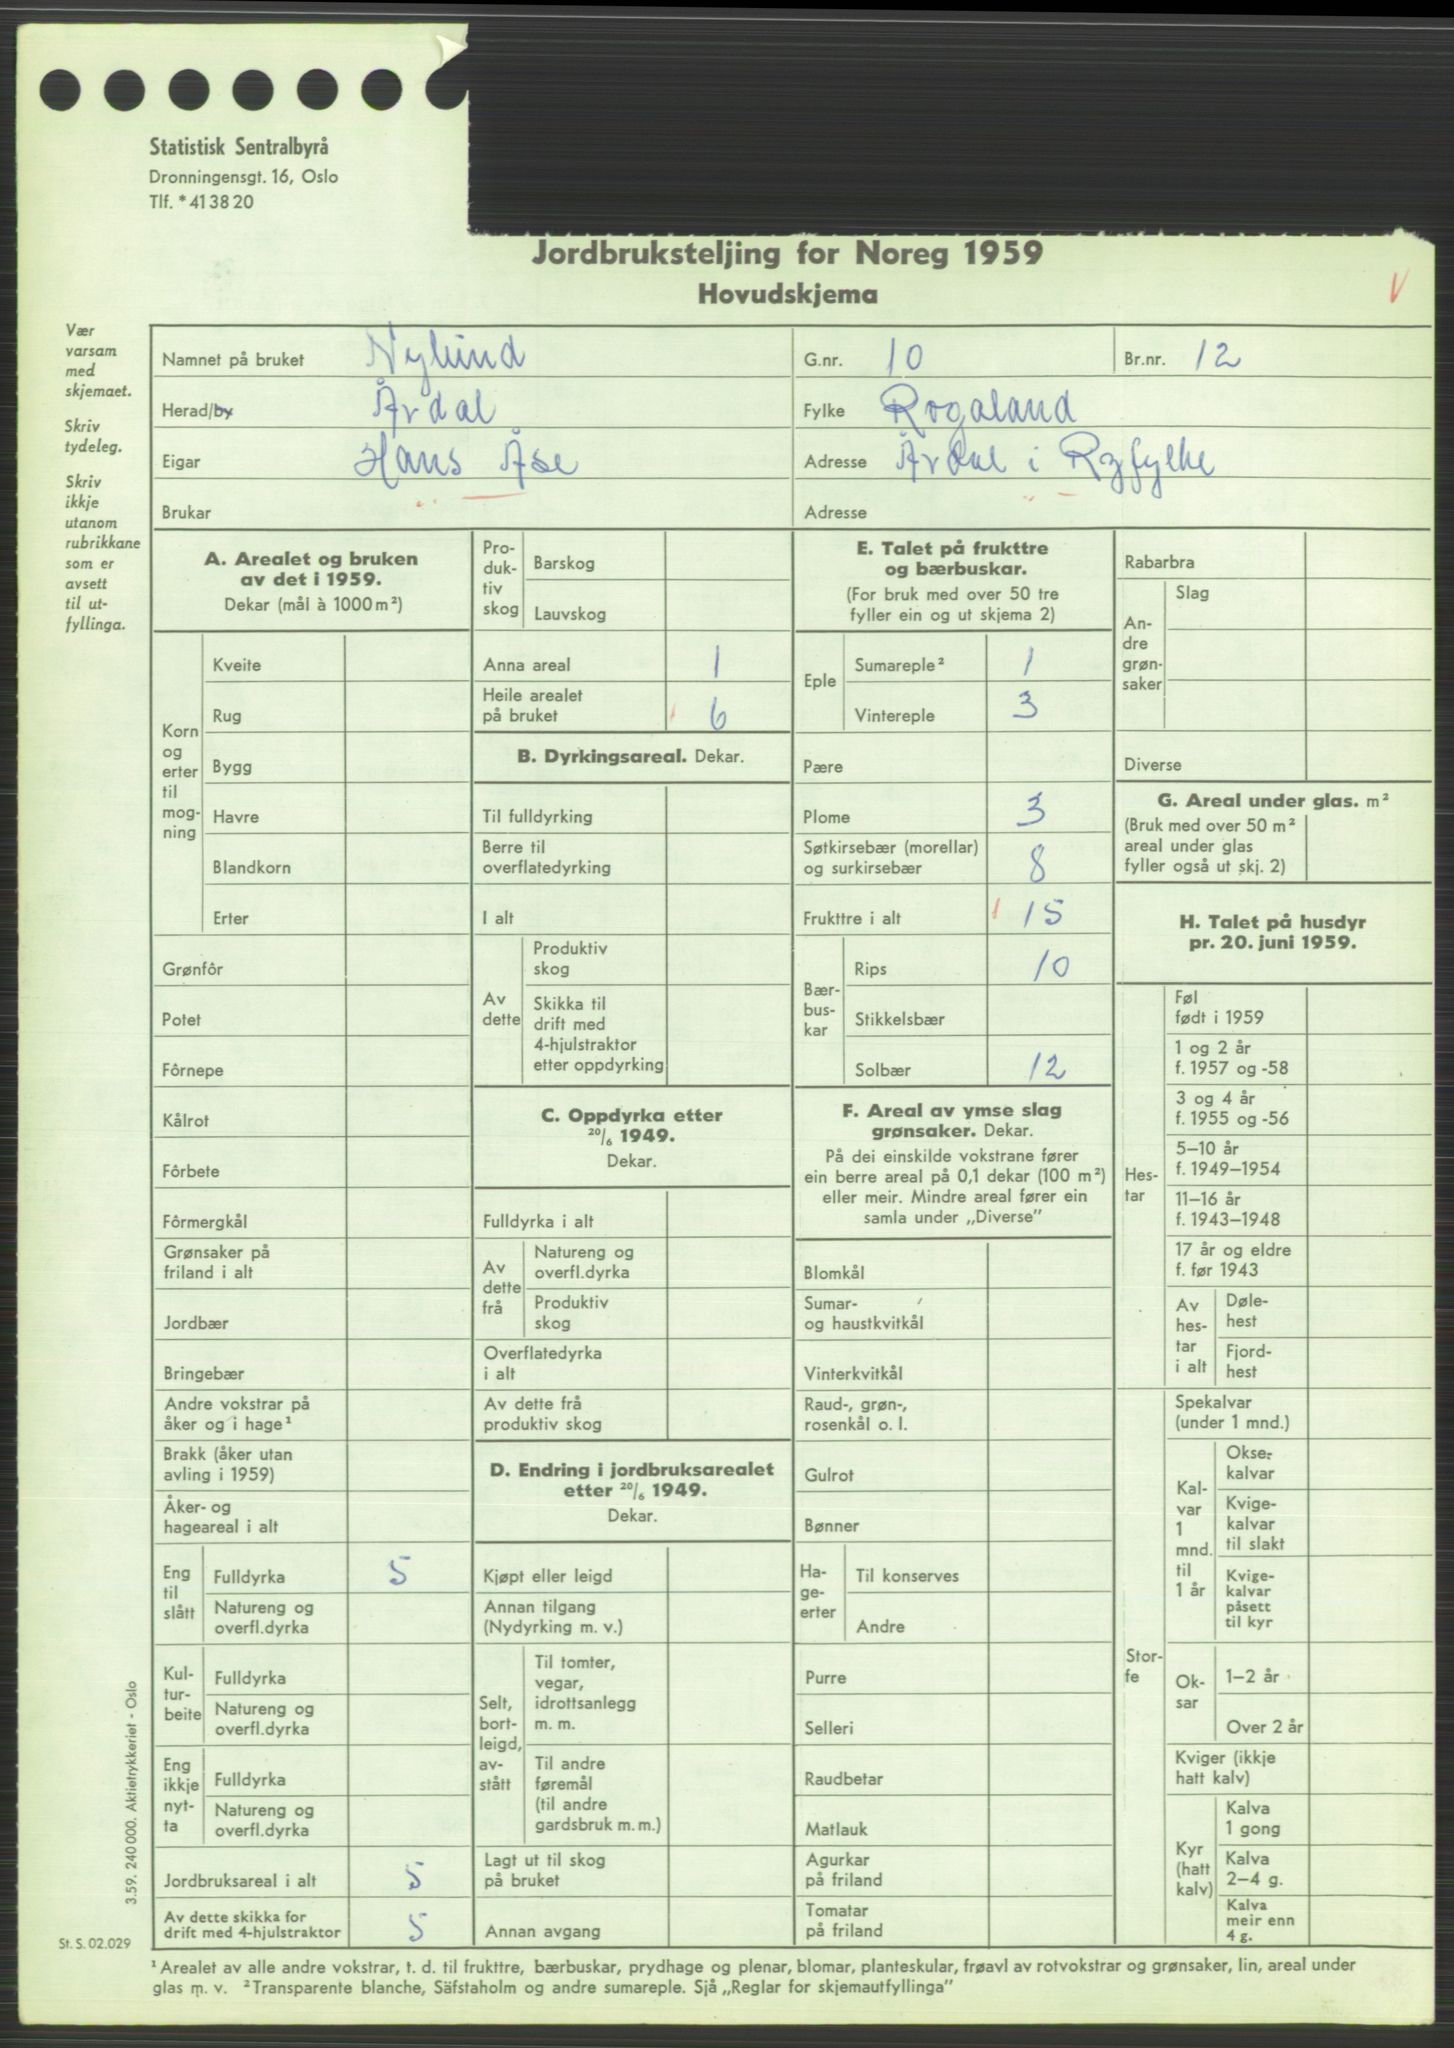 Statistisk Sentralbyrå
Dronningensgt. 16, Oslo
Tlf. *41 38 20
Jordbruksteljing for Noreg 1959
Hovudskjema
V
Vær
varsam
med
skjemaet.
Skriv
tydeleg.
Skriv
ikkje
utanom
rubrikkane
som er
avsett
til ut-
fyllinga.
Namnet på bruket Nylund G.nr. 10 Br.nr. 12
Herad/by Årdal Fylke Rogaland
Eigar Hans Åse Adresse Årdal i Ryfylke
Brukar Adresse
A. Arealet og bruken
av det i 1959.
Dekar (mål à 1000 m²)
Korn
og
erter
til
mog-
ning
Kveite
Rug
Bygg
Havre
Blandkorn
Erter
Grønfôr
Potet
Fôrnepe
Kålrot
Fôrbete
Fôrmergkål
Grønsaker på
friland i alt
Jordbær
Bringebær
Andre vokstrar på
åker og i hage¹
Brakk (åker utan
avling i 1959)
Åker- og
hageareal i alt
Eng
til
slått
Fulldyrka 5
Natureng og
overfl.dyrka
Kul-
tur-
beite
Fulldyrka
Natureng og
overfl.dyrka
Eng
ikkje
nyt-
ta
Fulldyrka
Natureng og
overfl.dyrka
Jordbruksareal i alt 5
Av dette skikka for
drift med 4-hjulstraktor 5
Pro-
duk-
tiv
skog
Barskog
Lauvskog
Anna areal 1
Heile arealet
på bruket 6
B. Dyrkingsareal. Dekar.
Til fulldyrking
Berre til
overflatedyrking
I alt
Av
dette
Produktiv
skog
Skikka til
drift med
4-hjulstraktor
etter oppdyrking
C. Oppdyrka etter
20/6 1949.
Dekar.
Fulldyrka i alt
Av
dette
frå
Natureng og
overfl.dyrka
Produktiv
skog
Overflatedyrka
i alt
Av dette frå
produktiv skog
D. Endring i jordbruksarealet
etter 20/6 1949.
Dekar.
Kjøpt eller leigd
Annan tilgang
(Nydyrking m. v.)
Selt,
bort-
leigd,
av-
stått
Til tomter,
vegar,
idrottsanlegg
m. m.
Til andre
føremål
(til andre
gardsbruk m. m.)
Lagt ut til skog
på bruket
Annan avgang
E. Talet på frukttre
og bærbuskar.
(For bruk med over 50 tre
fyller ein og ut skjema 2)
Eple
Sumareple² 1
Vintereple 3
Pære
Plome 3
Søtkirsebær (morellar)
og surkirsebær 8
Frukttre i alt 15
Bær-
bus-
kar
Rips 10
Stikkelsbær
Solbær 12
F. Areal av ymse slag
grønsaker. Dekar.
På dei einskilde vokstrane fører
ein berre areal på 0,1 dekar (100 m²)
eller meir. Mindre areal fører ein
samla under „Diverse”
Blomkål
Sumar-
og haustkvitkål
Vinterkvitkål
Raud-, grøn-,
rosenkål o. l.
Gulrot
Bønner
Ha-
ge-
erter
Til konserves
Andre
Purre
Selleri
Raudbetar
Matlauk
Agurkar
på friland
Tomatar
på friland
Rabarbra
An-
dre
grøn-
saker
Slag
Diverse
G. Areal under glas. m²
(Bruk med over 50 m²
areal under glas
fyller også ut skj. 2)
H. Talet på husdyr
pr. 20. juni 1959.
Hes-
tar
Føl
født i 1959
1 og 2 år
f. 1957 og -58
3 og 4 år
f. 1955 og -56
5–10 år
f. 1949–1954
11–16 år
f. 1943–1948
17 år og eldre
f. før 1943
Av
hes-
tar
i alt
Døle-
hest
Fjord-
hest
Stor-
fe
Spekalvar
(under 1 mnd.)
Kal-
var
1
mnd.
til
1 år
Okse-
kalvar
Kvige-
kalvar
til slakt
Kvige-
kalvar
påsett
til kyr
Ok-
sar
1–2 år
Over 2 år
Kviger (ikkje
hatt kalv)
Kyr
(hatt
kalv)
Kalva
1 gong
Kalva
2–4 g.
Kalva
meir enn
4 g.
3.59. 240 000. Aktietrykkeriet - Oslo
St. S. 02.029
¹ Arealet av alle andre vokstrar, t. d. til frukttre, bærbuskar, prydhage og plenar, blomar, planteskular, frøavl av rotvokstrar og grønsaker, lin, areal under
glas m. v. ² Transparente blanche, Säfstaholm og andre sumareple. Sjå „Reglar for skjemautfyllinga”